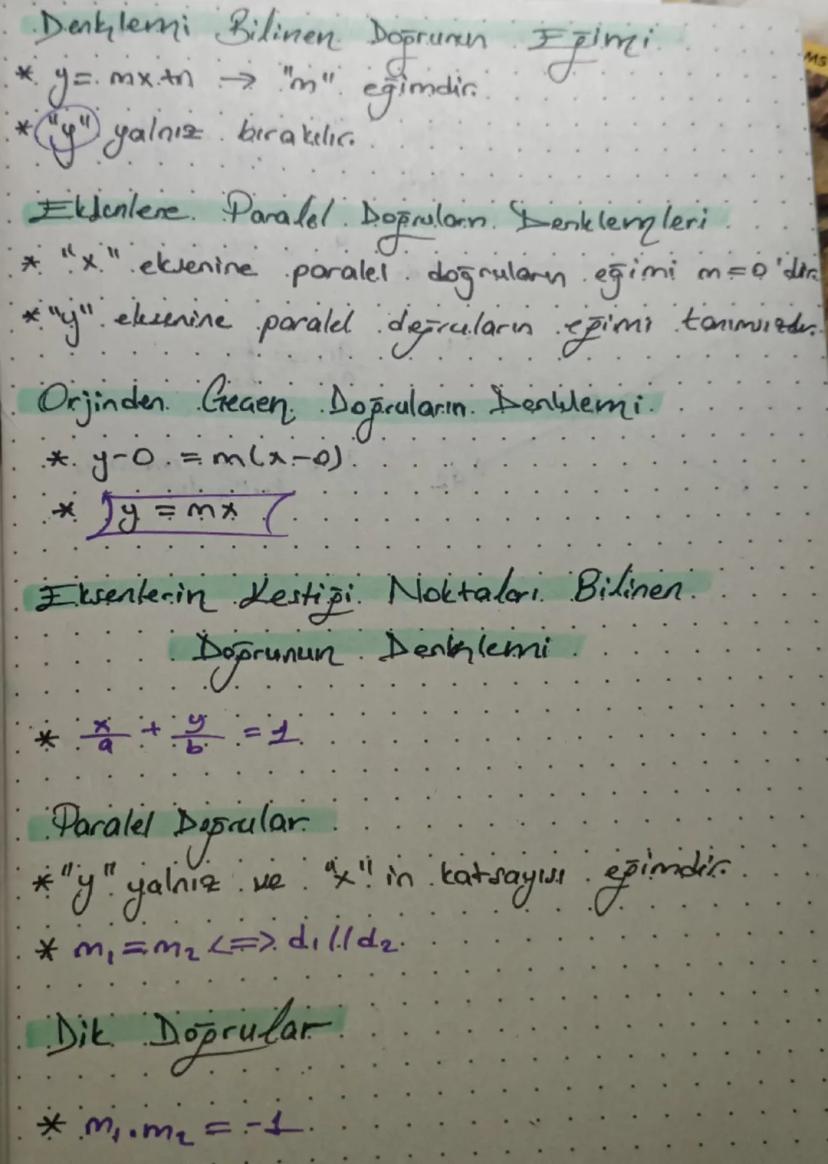 Denklemi Bilinen Doğrunun Eğimi
* y = mx+n → "m" eğimdir.
* "y" yalnız bırakılır.
Eksenlere Paralel Doğruların Denklemleri
* "x" eksenine paralel doğruların eğimi m=0'dır.
* "y" eksenine paralel doğruların eğimi tanımsızdır.
Orjinden Geçen Doğruların Denklemi
* y-0 = m(x-0)
* y = mx
Eksenlerin Kestiği Noktaları Bilinen
Doğrunun Denklemi
* x/a + y/b = 1
Paralel Doğrular
* "y" yalnız ve "x" in katsayısı eğimdir.
* m₁ = m₂ <=> d₁ // d₂
Dik Doğrular
* m₁.m₂ = -1
MS